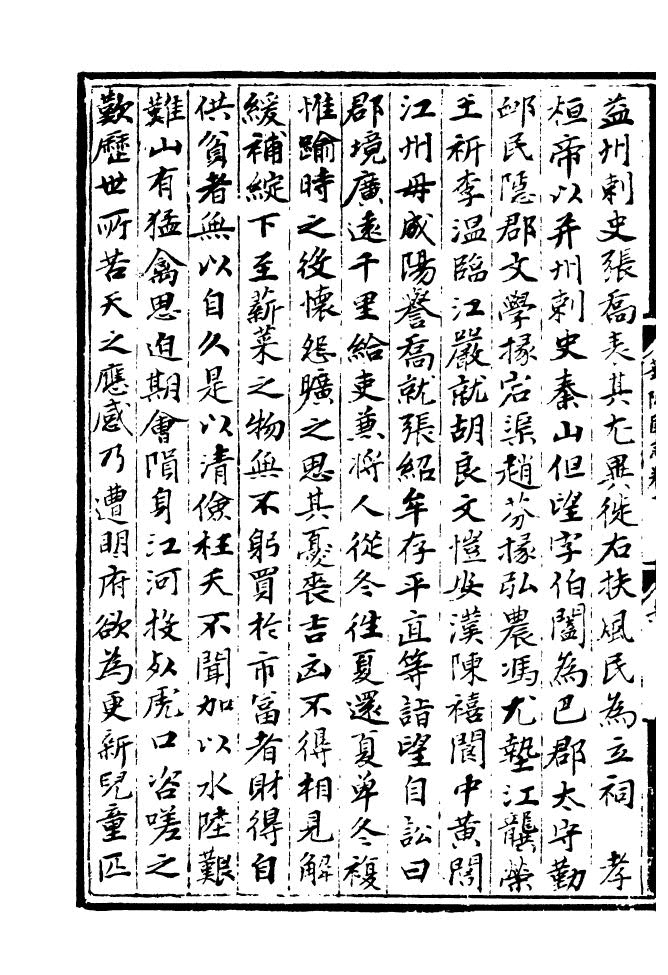 益州刺史張喬表其尤異徙右扶風民為立祠 孝
桓帝以并州刺史泰山但望字伯闔為巴郡太守勤
䘏民隱郡文學掾宕渠趙芬掾弘農馮尤墊江龔榮
王祈李溫臨江嚴就胡良文愷安漢陳禧閬中黃閶
江州毋成陽譽喬就張紹牟存平直等詣望自訟曰
郡境廣遠千里給吏兼將人從冬往夏還夏單冬複
惟踰時之役懷怨曠之思其憂喪吉凶不得相見解
緩補綻下至薪菜之物無不躬買於市富者財得自
供貧者無以自久是以清儉枉夭不聞加以水陸艱
難山有猛禽思迫期會隕身江河投死虎口咨嗟之
歎歷世所苦天之應感乃遭明府欲為更新兒童匹